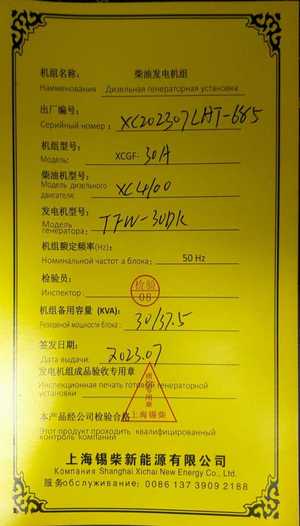 机组名称: 柴油发电机组
Наименования Дизельная генераторная установка
出厂编号:
Серийный номер : XC202307LHT-685
机组型号:
Модель: XCGF- 30A
柴油机型号:
Модель дизельного
двигателя: XC4100
发电机型号:
Модель
генератора: TFW-30DK
机组额定频率(Hz):
Номинальной частот а блока : 50 Hz
检验员:
Инспектор : 检验
08
机组备用容量 (KVA):
Резервной мощности блока : 30/37.5
签发日期:
Дата выдачи: 2023.07
发电机组成品验收专用章
Инспекционная печать готовой генераторной
установки
上海锡柴
本产品经公司检验合格
Этот продукт проходить квалифицированный
контроль компаний
上海锡柴新能源有限公司
Компания Shanghai Xichai New Energy Co., Ltd.
服务обслуживание: 0086 137 3909 2188